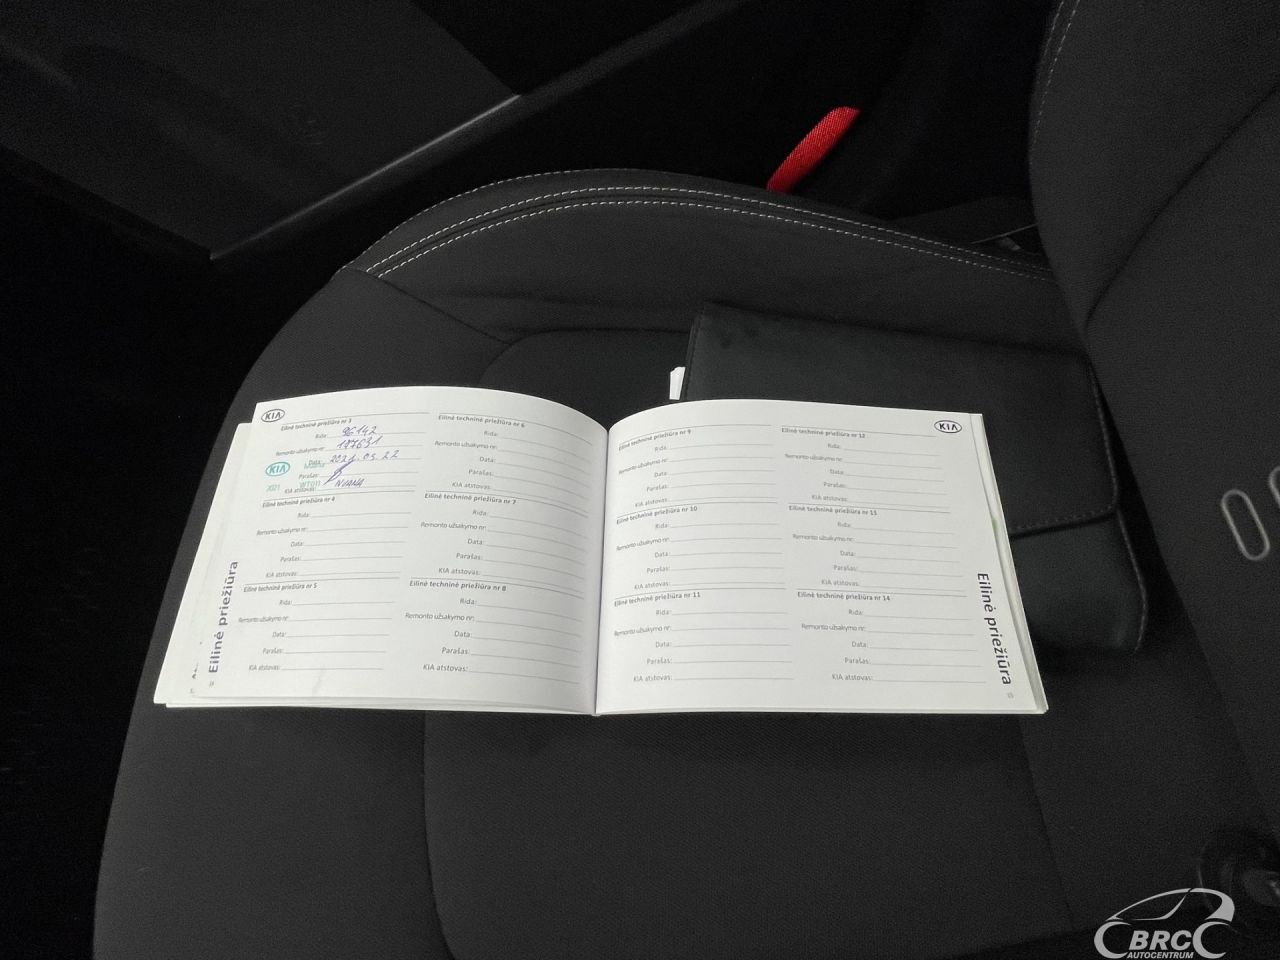 KIA
Eilinė techninė priežiūra nr 3
Rida: 96142
Remonto užsakymo nr: 177631
Data: 2021.09.22
KIA
Parašas:
2021
KIA atstovas:
Eilinė techninė priežiūra nr 4
Rida:
Remonto užsakymo nr:
Data:
Parašas:
KIA atstovas:
Eilinė techninė priežiūra nr 5
Rida:
Remonto užsakymo nr:
Data:
Parašas:
KIA atstovas:
Eilinė priežiūra
Eilinė techninė priežiūra nr 6
Rida:
Remonto užsakymo nr:
Data:
Parašas:
KIA atstovas:
Eilinė techninė priežiūra nr 7
Rida:
Remonto užsakymo nr:
Data:
Parašas:
KIA atstovas:
Eilinė techninė priežiūra nr 8
Rida:
Remonto užsakymo nr:
Data:
Parašas:
KIA atstovas:
Eilinė techninė priežiūra nr 9
Rida:
Remonto užsakymo nr:
Data:
Parašas:
KIA atstovas:
Eilinė techninė priežiūra nr 10
Rida:
Remonto užsakymo nr:
Data:
Parašas:
KIA atstovas:
Eilinė techninė priežiūra nr 11
Rida:
Remonto užsakymo nr:
Data:
Parašas:
KIA atstovas:
KIA
Eilinė techninė priežiūra nr 12
Rida:
Remonto užsakymo nr:
Data:
Parašas:
KIA atstovas:
Eilinė techninė priežiūra nr 13
Rida:
Remonto užsakymo nr:
Data:
Parašas:
KIA atstovas:
Eilinė techninė priežiūra nr 14
Rida:
Remonto užsakymo nr:
Data:
Parašas:
KIA atstovas:
Eilinė priežiūra
BRC
AUTOCENTRUM